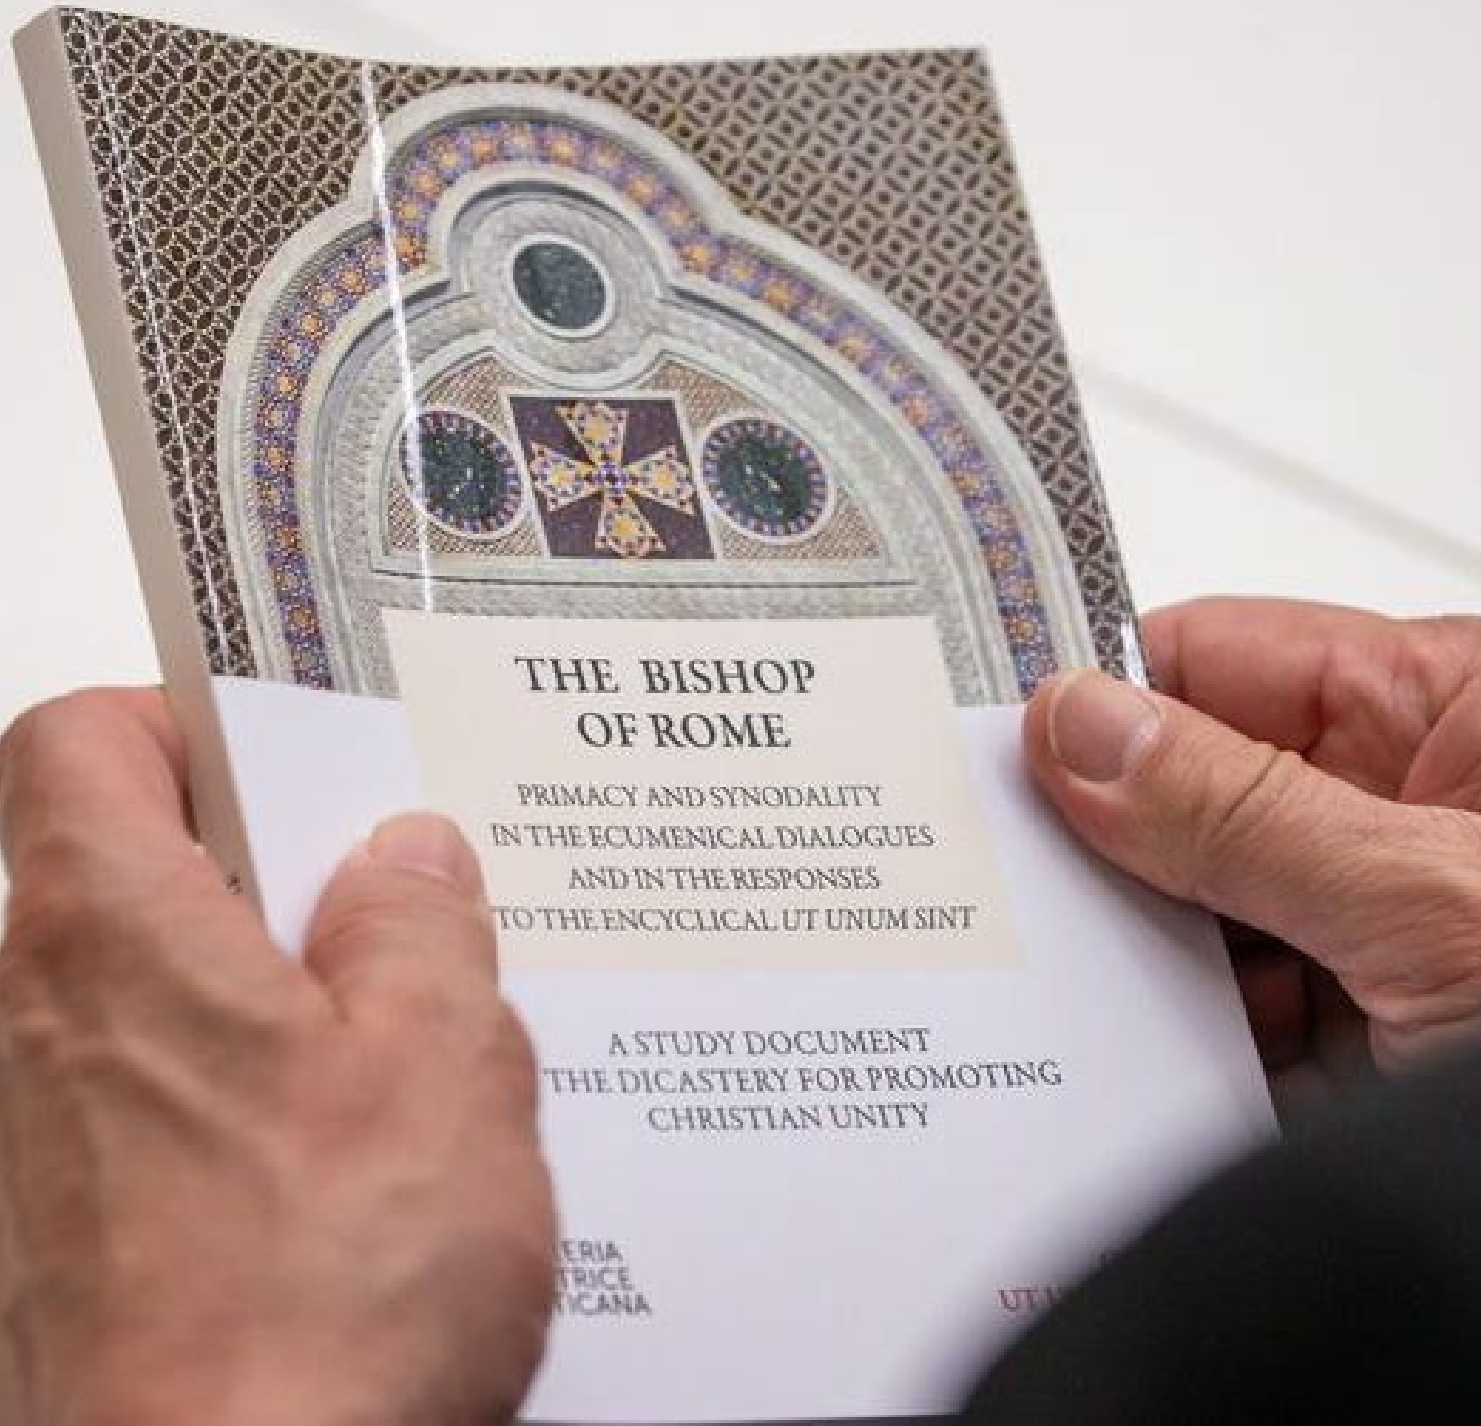 THE BISHOP
OF ROME
PRIMACY AND SYNODALITY
IN THE ECUMENICAL DIALOGUES
AND IN THE RESPONSES
TO THE ENCYCLICAL UT UNUM SINT
A STUDY DOCUMENT
THE DICASTERY FOR PROMOTING
CHRISTIAN UNITY
ERIA
TRICE
TICANA
UT